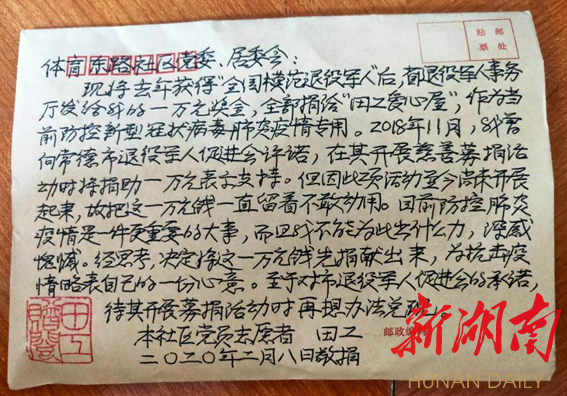 贴 邮
票 处
体育东路社区党委、居委会:
现将去年获得“全国模范退役军人”后,省退役军人事务
厅发给我的一万元奖金,全部捐给“田工爱心屋”,作为当
前防控新型冠状病毒肺炎疫情专用。2018年11月,我曾
向常德市退役军人促进会许诺,在其开展慈善募捐活
动时将捐助一万元表示支持。但因此项活动至今尚未开展
起来,故把这一万元钱一直留着不敢动用。目前防控肺炎
疫情是一件更重要的大事,而因我不能为此出什么力,深感
愧憾。经思考,决定将这一万元钱先捐献出来,为抗击疫
情略表自己的一份心意。至于对市退役军人促进会的承诺,
待其开展募捐活动时再想办法兑现。
本社区党员志愿者 田工
二〇二〇年二月八日敬捐
邮政编码
新湖南
HUNAN DAILY